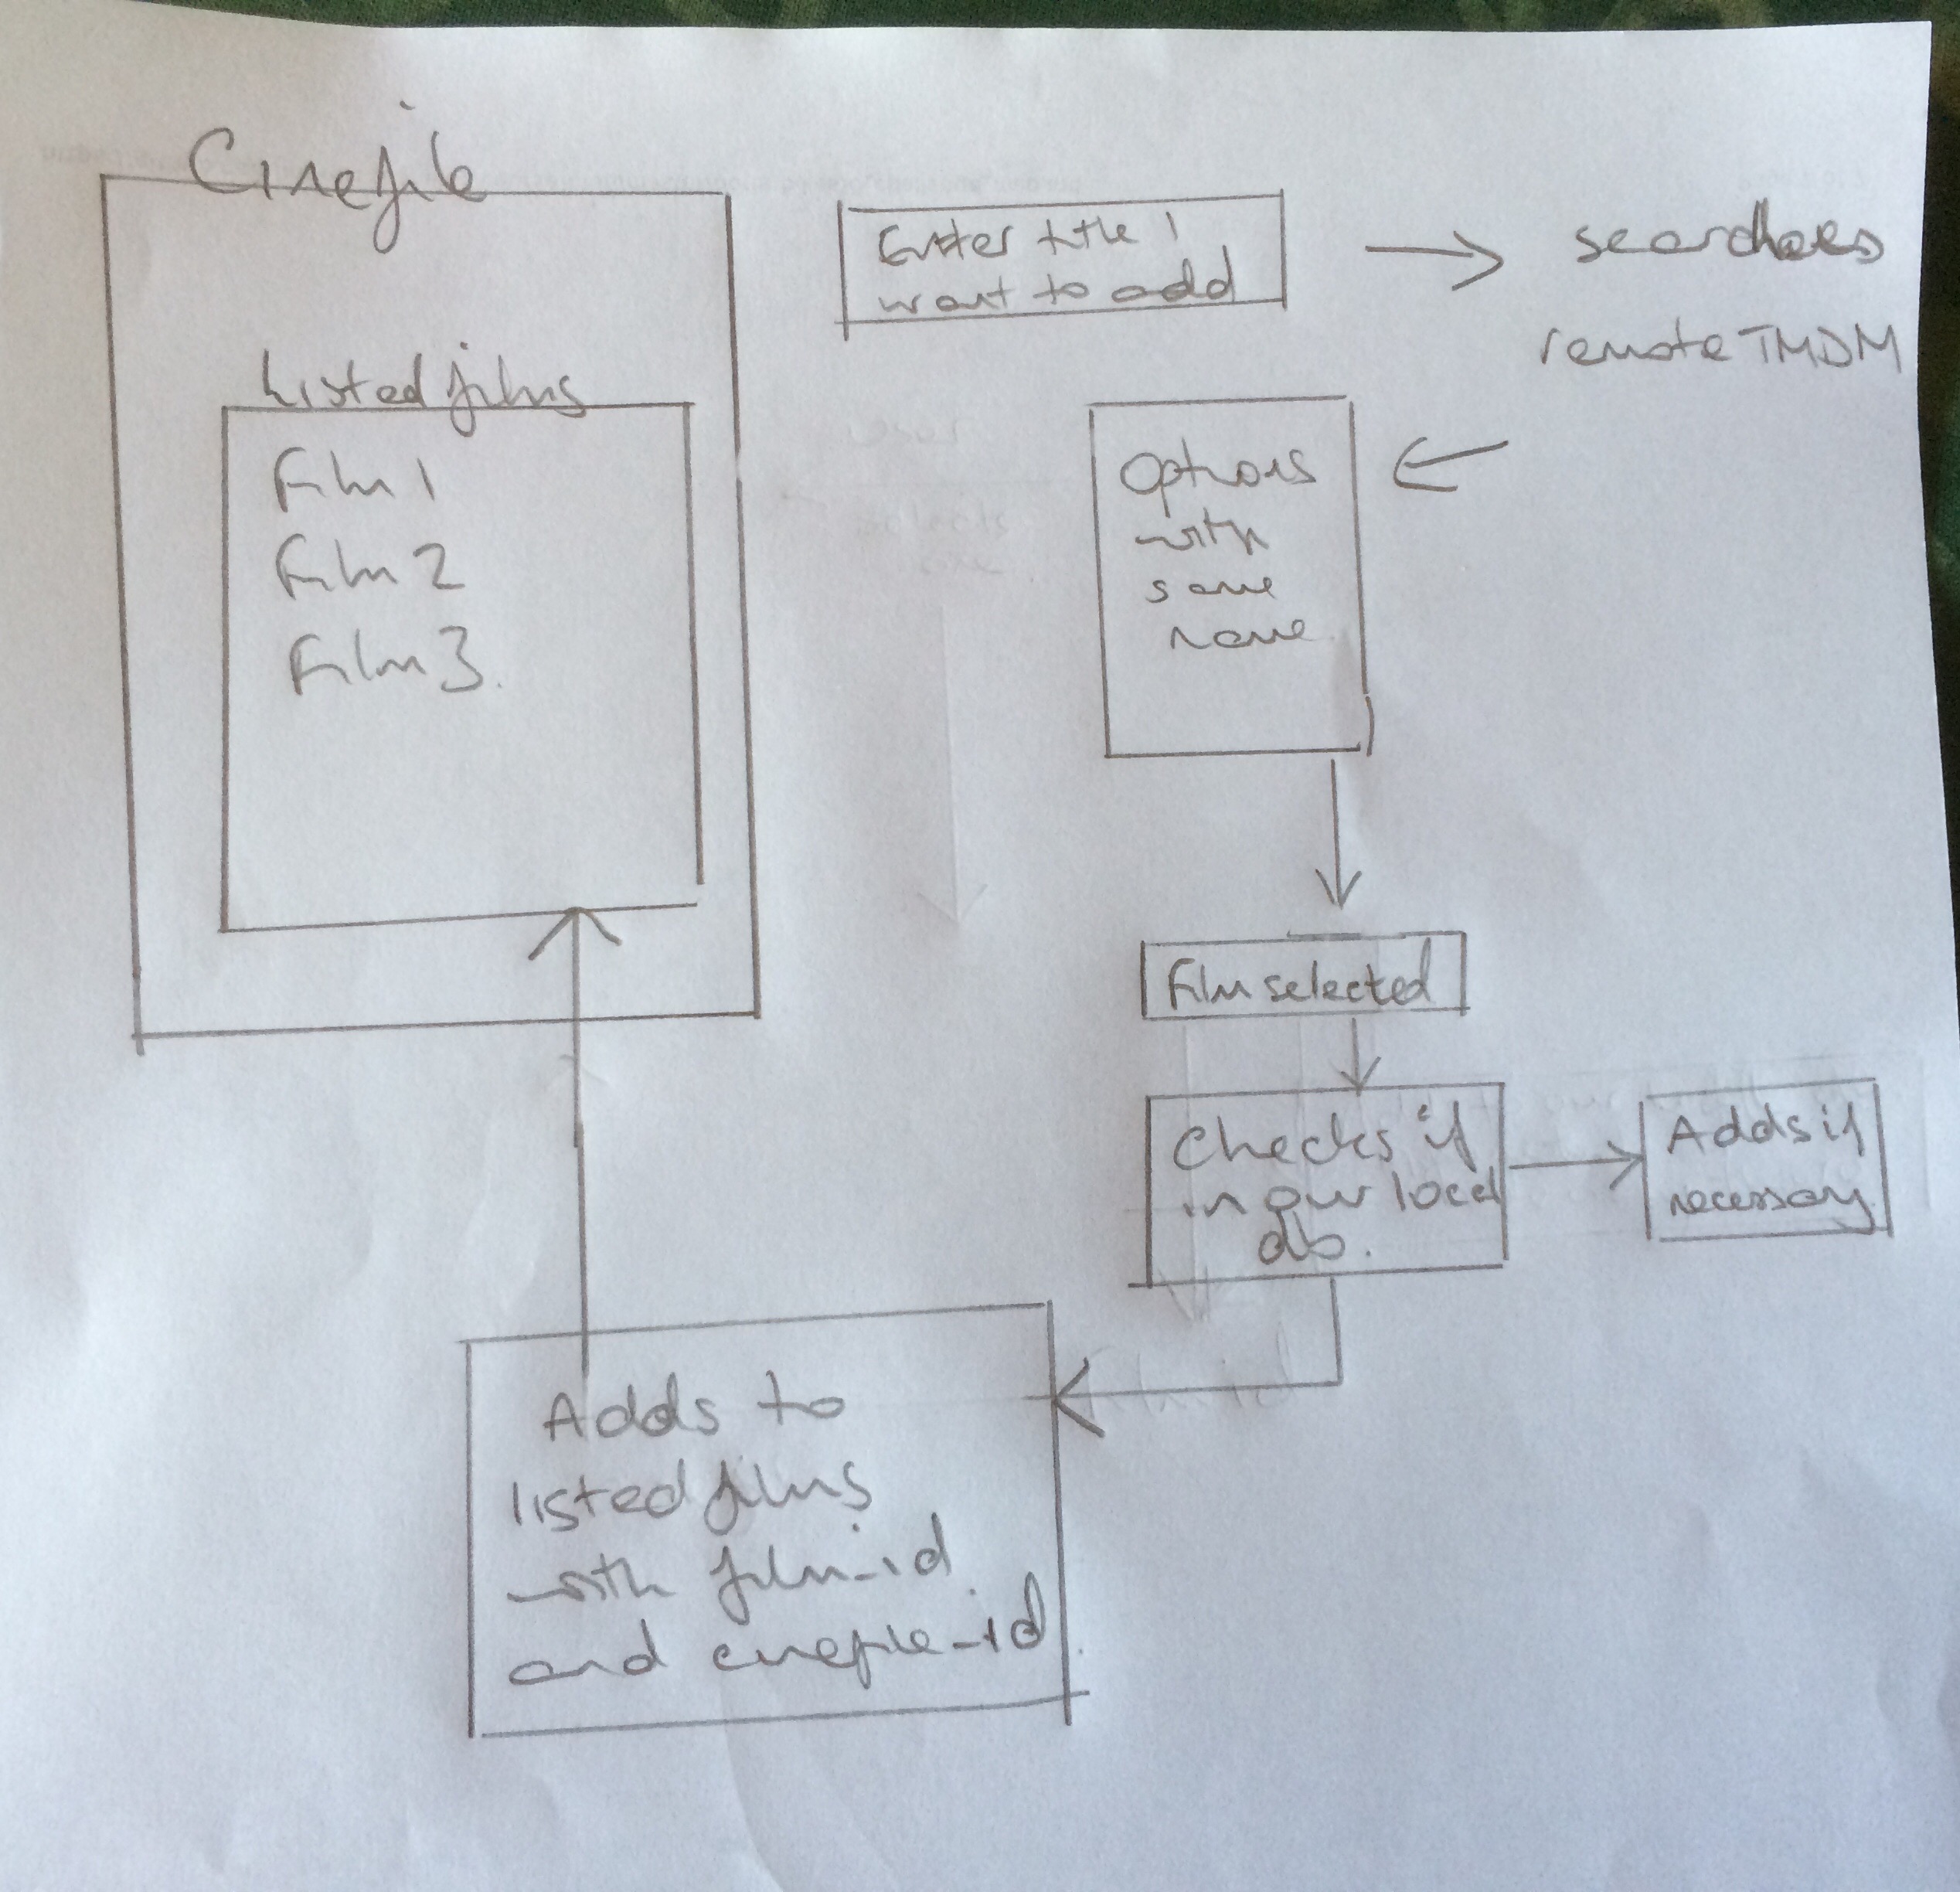 Cinefile
Listed films
Film 1
Film 2
Film 3.
Enter title I
want to add
searches
remote TMDM
Options
with
same
name
Film selected
Checks if
in our local
db.
Adds if
necessary
Adds to
listed films
with film_id
and cinefile_id.